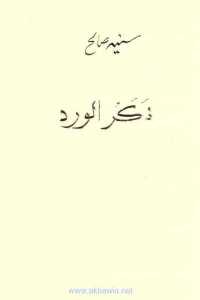 سنية صالح
ذكر الورد
www.akbawia.net